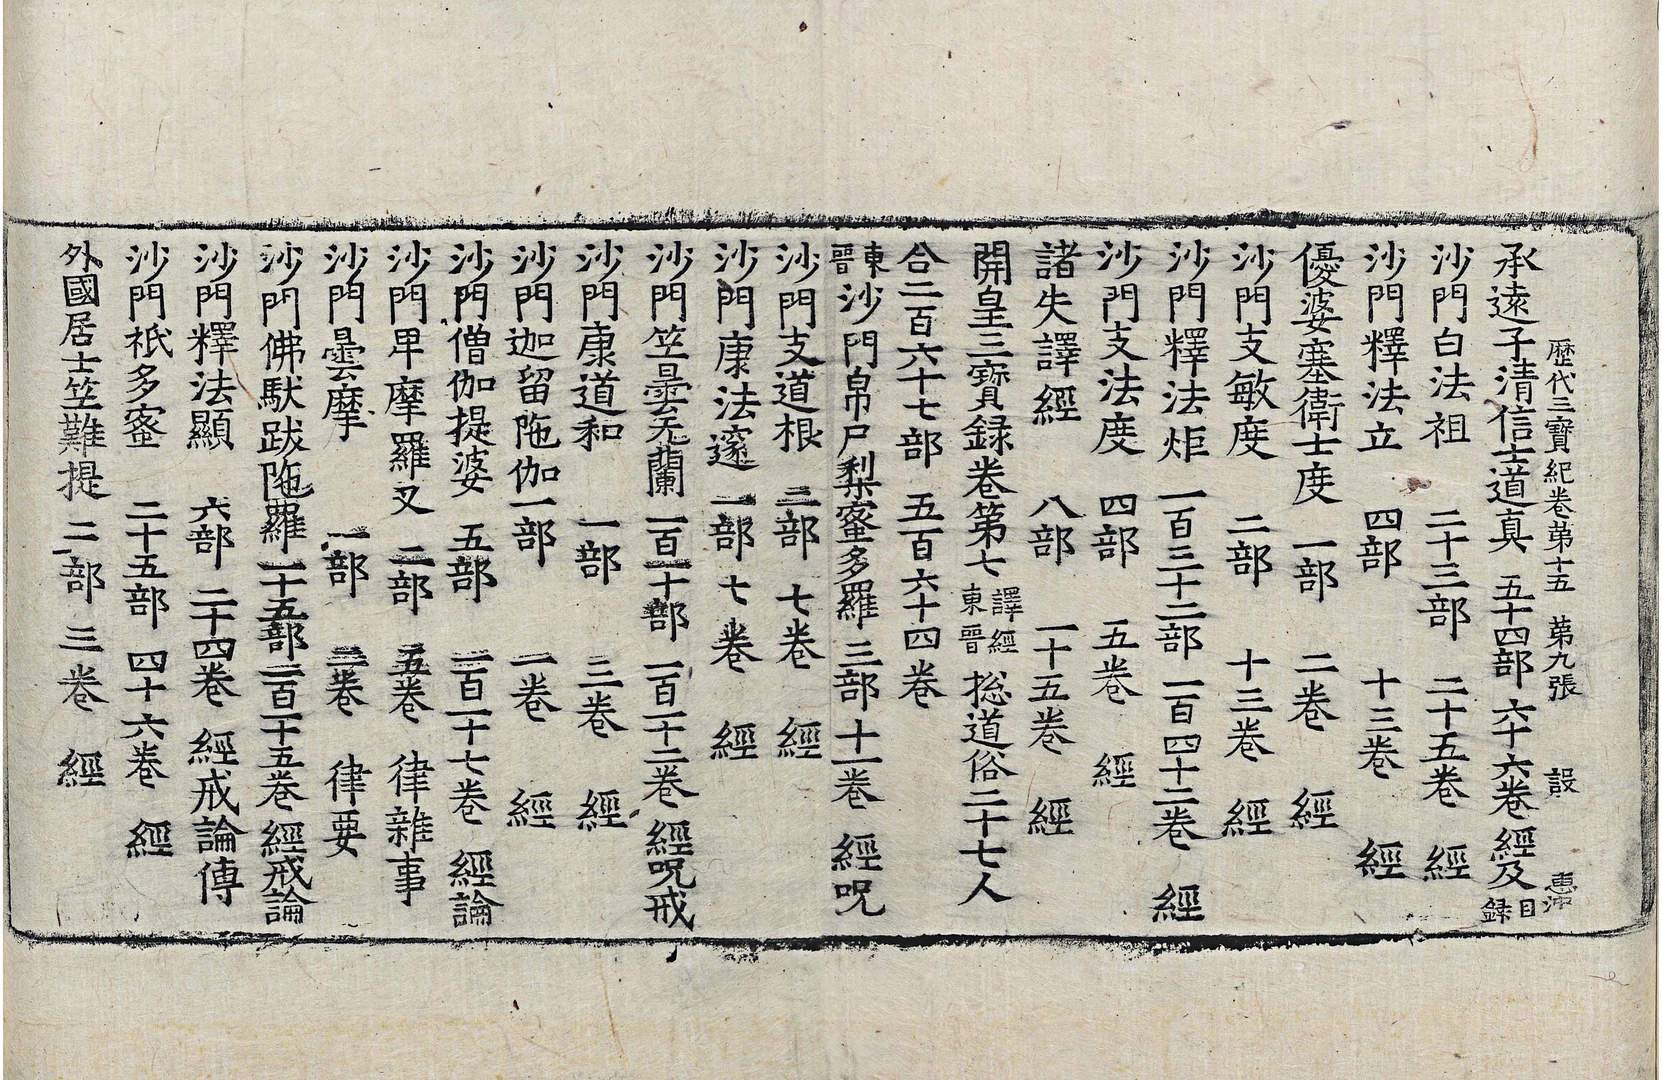 歷代三寶紀卷第十五　第九張　設　惠沖
承遠子清信士道真　五十四部　六十六卷　經及目錄
沙門白法祖　二十三部　二十五卷　經
沙門釋法立　四部　十三卷　經
優婆塞衛士度　一部　二卷　經
沙門支敏度　二部　十三卷　經
沙門釋法炬　一百三十二部　一百四十二卷　經
沙門支法度　四部　五卷　經
諸失譯經　八部　一十五卷　經
開皇三寶錄卷第七　譯經東晉　揔道俗二十七人
合二百六十七部　五百六十四卷
東晉沙門帛尸梨蜜多羅　三部　十一卷　經呪
沙門支道根　二部　七卷　經
沙門康法邃　一部　七卷　經
沙門竺曇无蘭　一百一十部　一百一十二卷　經呪戒
沙門康道和　一部　三卷　經
沙門迦留陁伽　一部　一卷　經
沙門僧伽提婆　五部　一百一十七卷　經論
沙門卑摩羅叉　二部　五卷　律雜事
沙門曇摩　一部　二卷　律要
沙門佛馱跋陁羅　一十五部　一百一十五卷　經戒論
沙門釋法顯　六部　二十四卷　經戒論傳
沙門祇多蜜　二十五部　四十六卷　經
外國居士竺難提　二部　三卷　經